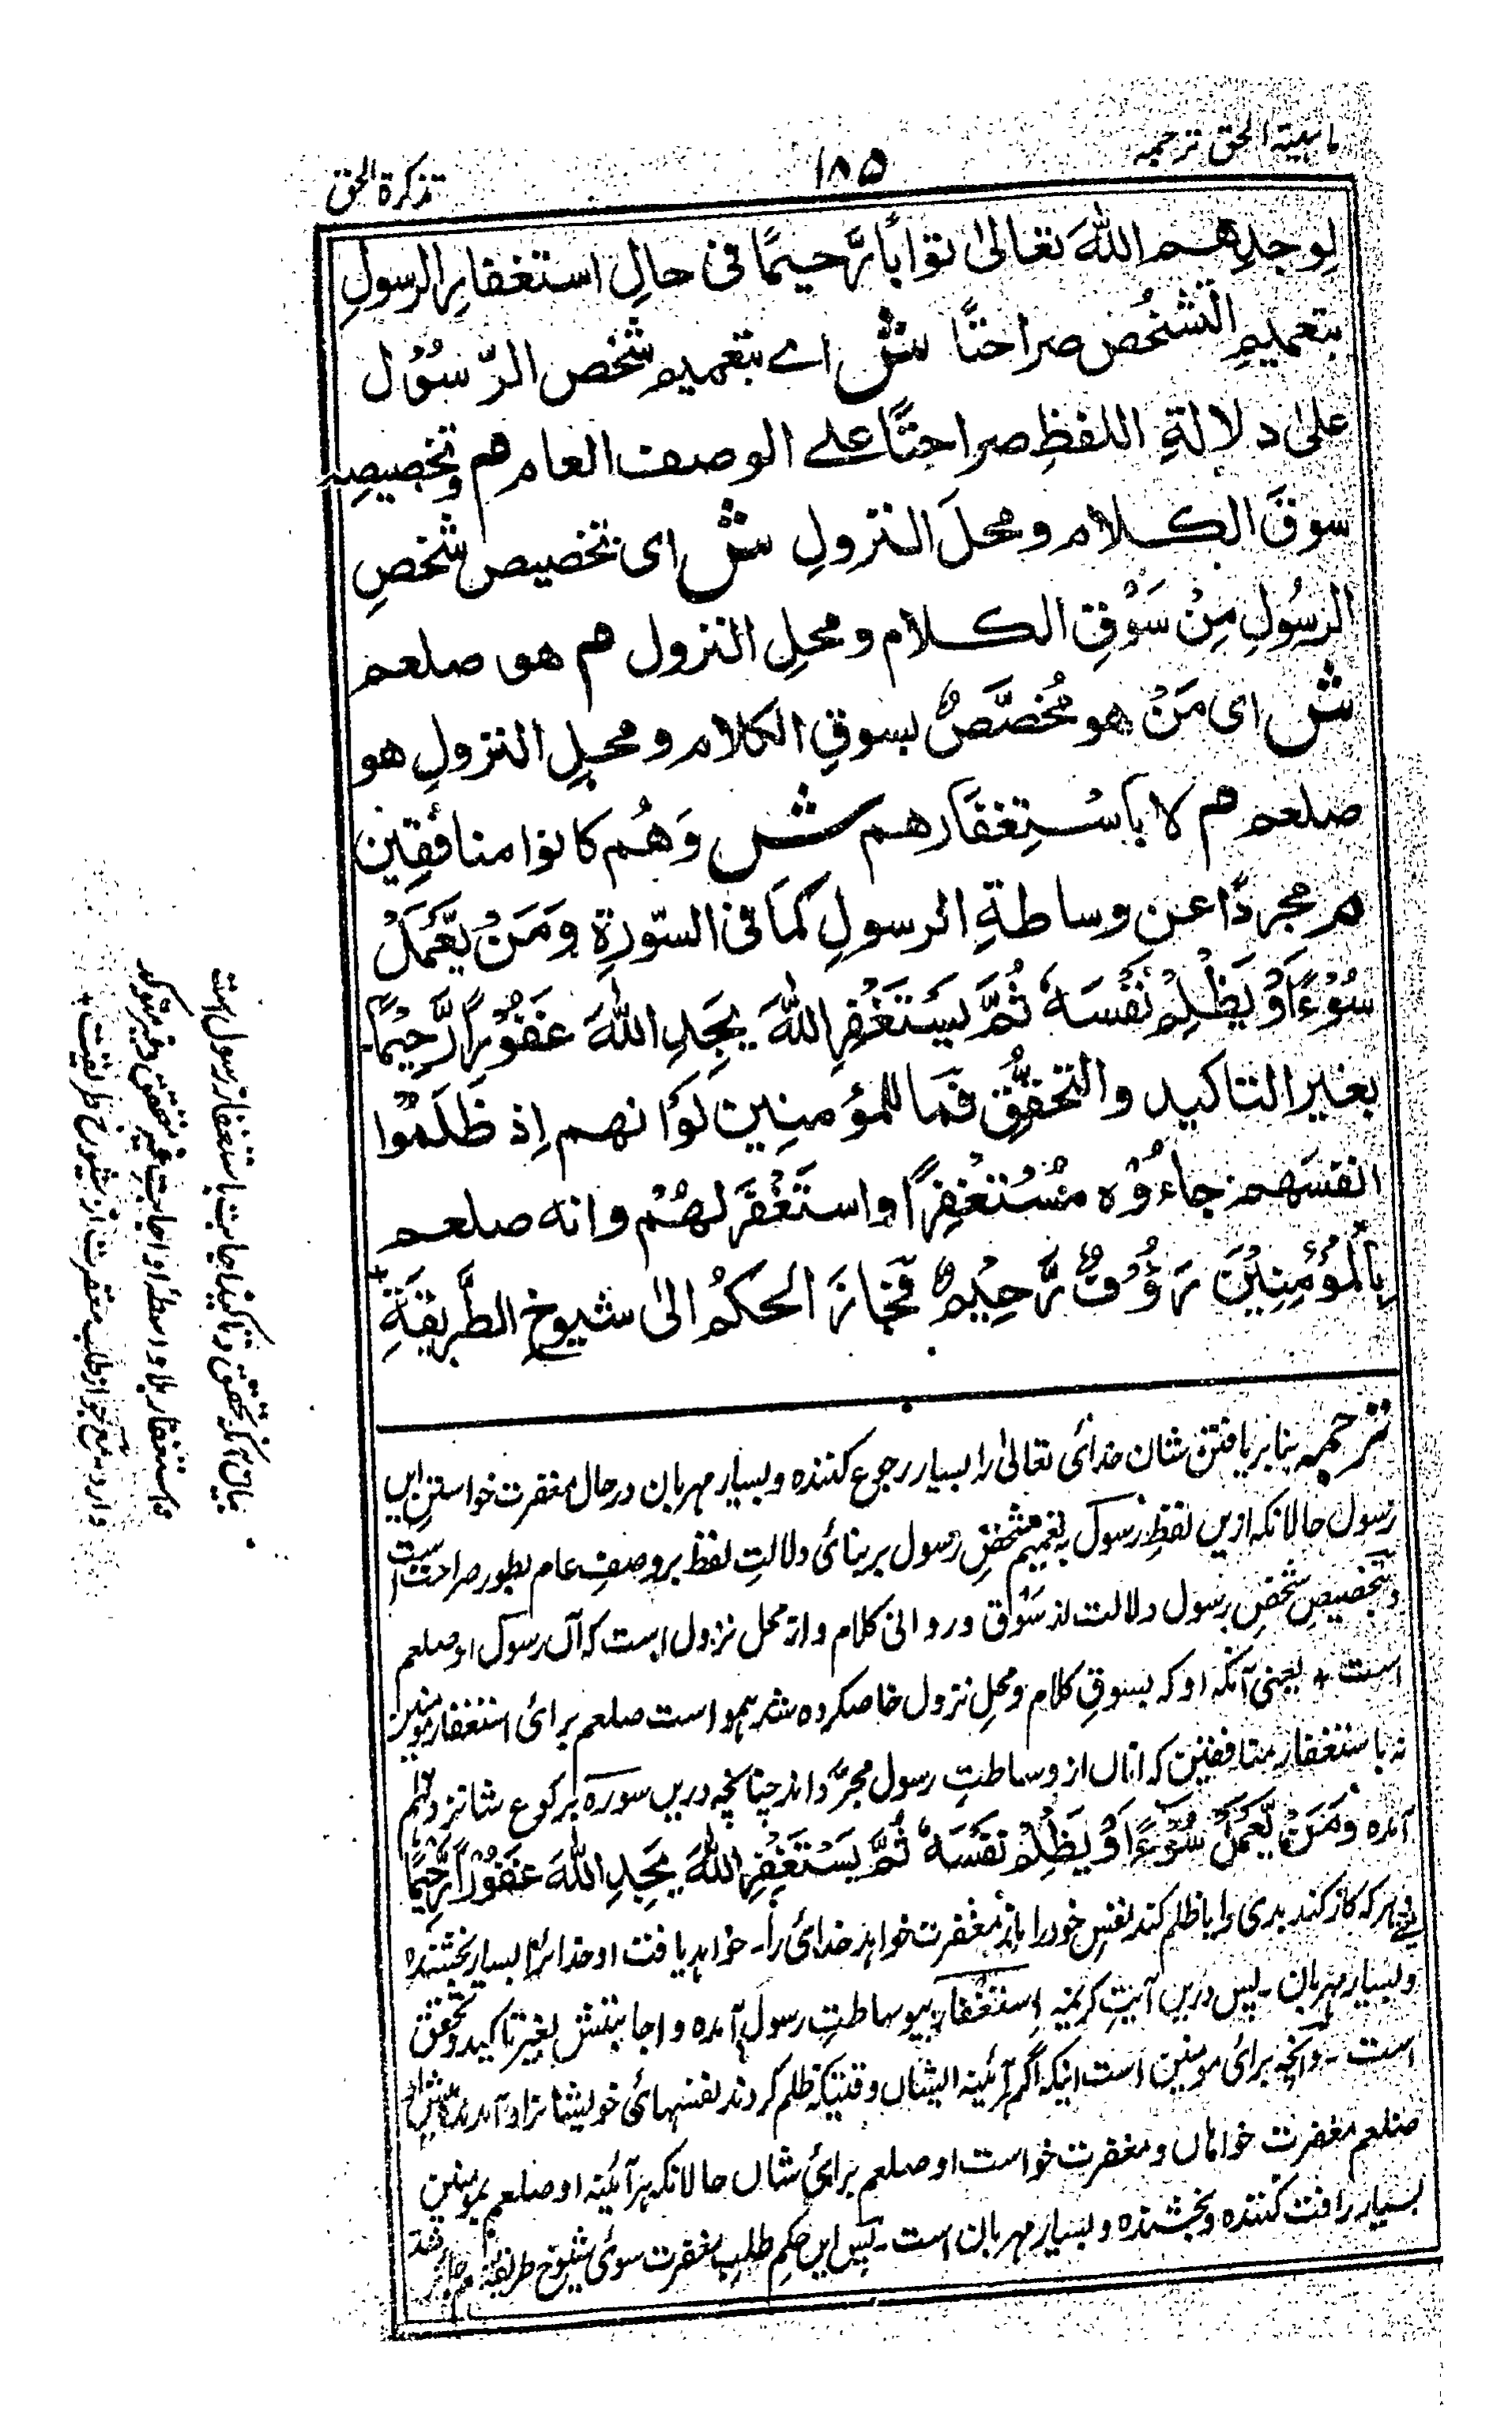 ماہیۃ الحق ترجمہ
۱۸۵
تذکرۃ الحق
لوجدِھم اللہَ تعالیٰ توّاباً رَّحیمًا فی حالِ استغفارِ الرسولِ
بتعمیمِ الشخُص صراحتًا ش اے بتعمیمِ شخص الرّسُوْل
علیٰ دلالةِ اللفظِ صراحتًا علے الوصف العام م وتخصیصِہ
سوقَ الکلام ومحلَ النزولِ ش ای تخصیص شخصِ
الرسُولِ مِنْ سَوْقِ الکلام ومحلِ النزول م ھو صلعم
ش ای مَنْ ھو مُخصَّصٌ بسوقِ الکلام ومحلِ النزولِ ھو
صلعم م لا بِاسْتِغفَارھم ش وَھُم کانوا منافقین
م مجردًا عن وساطةِ الرسولِ کمَا فی السّورۃِ وَمَنْ یَّعْمَلْ
سُوْءًا اَوْ یَظْلِمْ نَفْسَہٗ ثُمَّ یَسْتَغْفِرِ اللہَ یَجِدِ اللہَ غَفُوْراً رَّحِیْمًا۔
بغیر التاکید والتحقُّقِ فَمَا للمؤمنِین لَوْ انھم اِذ ظَلَمُوْا
انفسَھم جاءُوْہ مُسْتَغْفِرًا واستَغْفَرَ لھُمْ وانہ صلعم
بِالْمُؤْمِنِیْنَ رَؤُفٌ رَّحِیْمٌ فَجَازَ الحکمُ الیٰ شیوخِ الطَّرِیقَةِ +
ترجمہ بنا بر یافتن شان خدائی تعالیٰ را بسیار رجوع کنندہ وبسیار مہربان در حال مغفرت خواستنِ ایں
رسول حالانکہ ازیں لفظِ رسول بہ تعمیمِ شخصِ رسول بر بنائی دلالتِ لفظ بر وصفِ عام بطور صراحت است
وتخصیصِ شخصِ رسول دلالت از سَوْق وروانی کلام واز محل نزول است کہ آں رسول او صلعم
است + یعنی آنکہ او کہ بسوقِ کلام ومحلِ نزول خاصکردہ شد ہمو است صلعم برائی استغفار مومنین
نہ با ستغفار منافقین کہ اناں از وساطتِ رسول مجرّد اند چنانچہ دریں سورہ بر کوع شانزدہم
آمدہ وَمَنْ یَّعْمَلْ سُوْٓءًا اَوْ یَظْلِمْ نَفْسَہٗ ثُمَّ یَسْتَغْفِرِ اللہَ یَجِدِ اللہَ غَفُوْراً رَّحِیْمًا
یعنے ہر کہ کار کند بدی را یا ظلم کند نفسِ خود را باز مغفرت خواہد خدائی را۔ خواہد یافت او خدا را بسیار بخشندہ
وبسیار مہربان۔ پس دریں آیتِ کریمہ استغفار بیوساطتِ رسول آمدہ و اجابتش بغیر تاکید وتحقق
است۔ وآنچہ برائی مومنین است اینکہ اگر ہر آئینہ ایشاں وقتیکہ ظلم کردند نفسہائی خویشانرا و آمدند پیش او
صلعم مغفرت خواہاں ومغفرت خواست او صلعم برائی شاں حالانکہ ہر آئینہ او صلعم بمومنین
بسیار رافت کنندہ وبخشندہ وبسیار مہربان است۔ پس ایں حکمِ طلب مغفرت سوئی شیوخ طریقہ ہم جائز شد